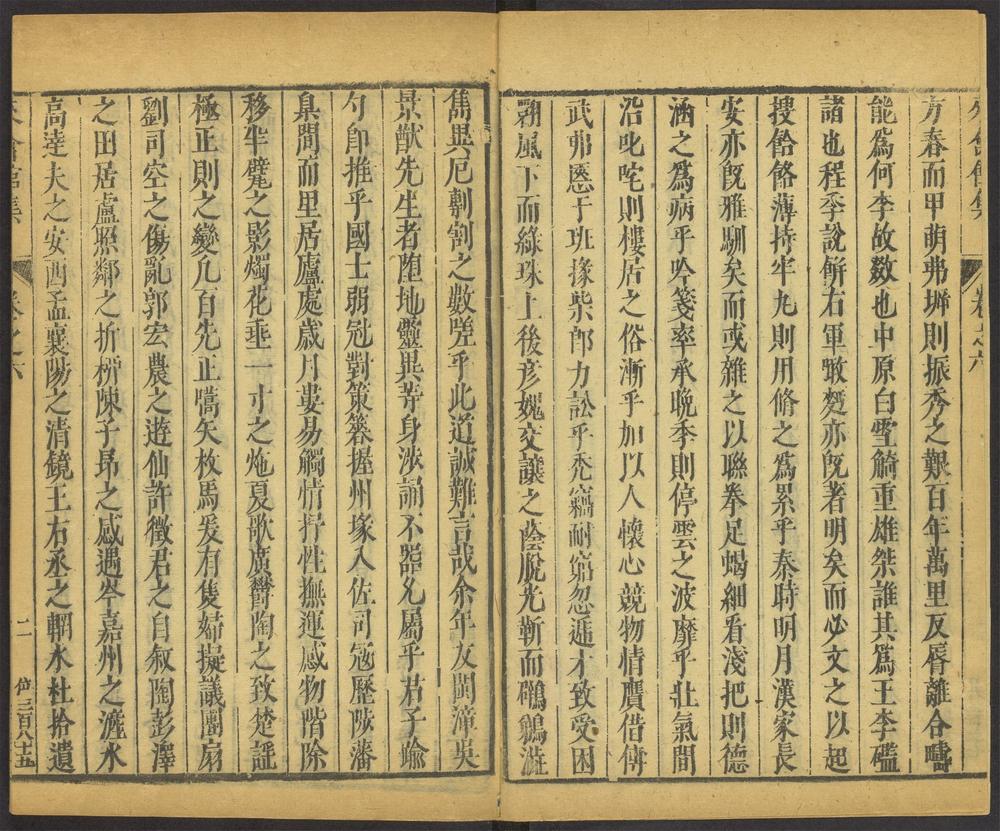 方春而甲萌弗㘿則振秀之艱百年萬里反脣離合疇
能爲何李故斆也中原白雪觭重雄桀誰其爲王李礛
諸也程季說餅右軍噉麪亦既著明矣而必文之以起
搜餄餎薄持牢九則用脩之爲累乎秦時明月漢家長
安亦既雅馴矣而或雜之以聯拳足蝎細看淺把則德
涵之爲病乎吟箋率承晚季則停雲之波靡乎壯氣間
沿叱咤則樓居之俗漸乎加以人懷心競物情贋借傅
武弗慝于班掾柴郎力訟乎禿竊耐窮忽遁才致受困
翾風下而綠珠上後彥媿交讓之蔭脫光靳而鸓鷃澁
雋異卮剸割之數嗟乎此道誠難言哉余年友閩漳吳
景猷先生者墮地靈異莠身汝誦不器允屬乎君子綸
勺卽推乎國士弱冠對策簭握州塚入佐司冦歷陝藩
臬間而里居廬處歲月婁易觸情抒性撫運感物階除
移半甓之影燭花垂一寸之炧夏歌廣鬱陶之致楚謡
極正則之變凢百先正嚆矢枚馬爰有隻婦擬議團扇
劉司空之傷亂郭宏農之遊仙許徵君之自敘陶彭澤
之田居盧照鄰之折桺陳子昻之感遇岑嘉州之滻水
高達夫之安酉孟襄陽之清鏡王右丞之輞水杜拾遺
卷之六
卷之六
二
三百八十五